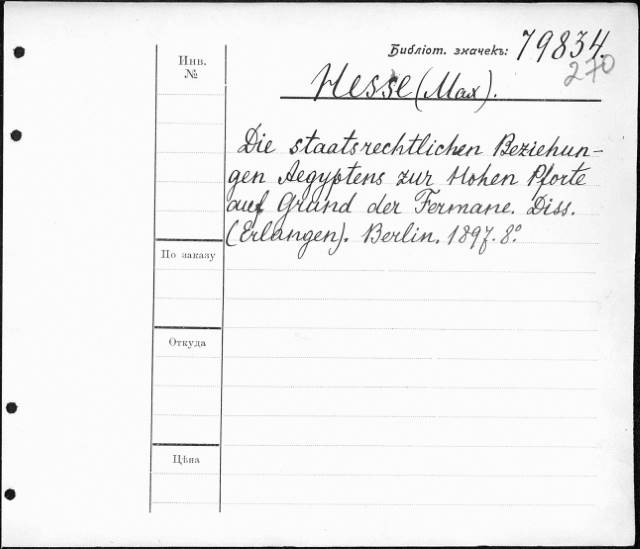 Библіот. значекъ: 79834.
270
Инв.
№
Hesse (Max).
Die staatsrechtlichen Beziehun-
gen Aegyptens zur Hohen Pforte
auf Grund der Fermane. Diss.
(Erlangen). Berlin. 1897. 8°.
По заказу
Откуда
Цѣна